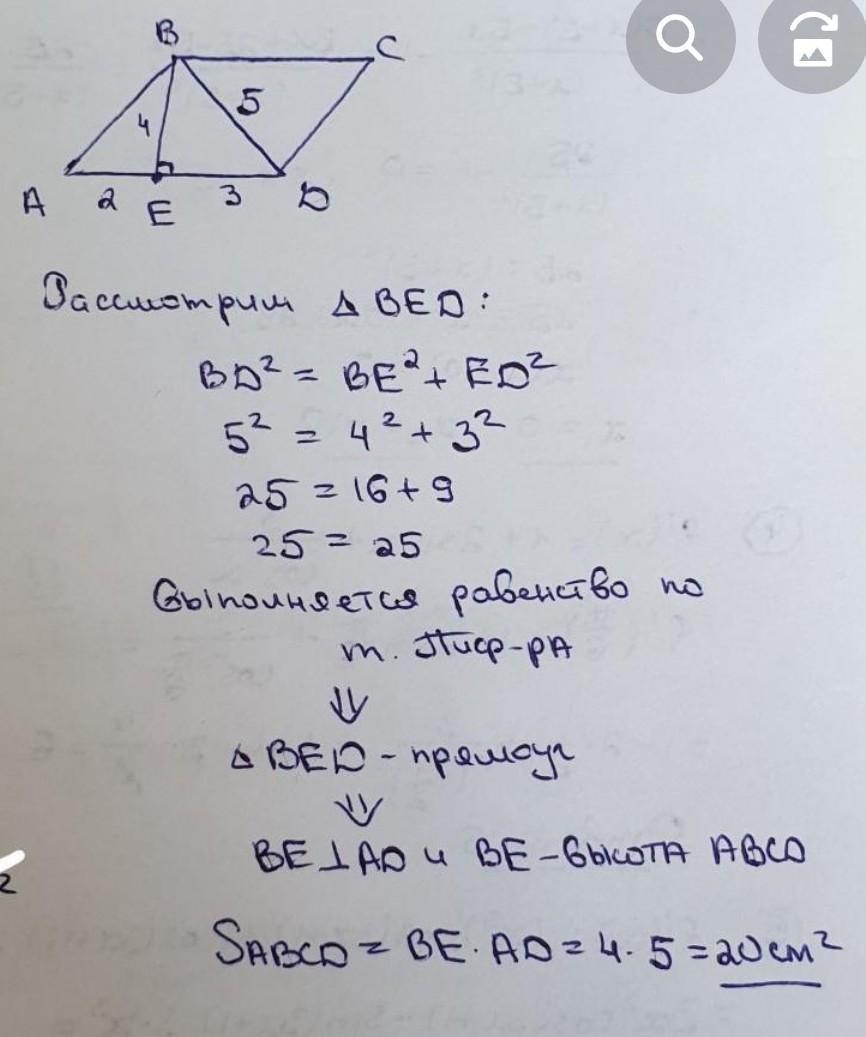 B
C
4
5
A
2
E
3
D
Рассмотрим △ BED:
BD² = BE² + ED²
5² = 4² + 3²
25 = 16 + 9
25 = 25
Выполняется равенство по
т. Пиф-рА
⇓
△ BED - прямоуг
⇓
BE⊥AD и BE - высота ABCD
SABCD = BE · AD = 4 · 5 = 20 см²
2